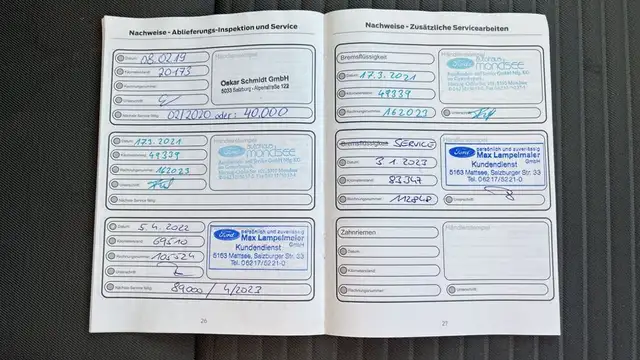 Nachweise - Ablieferungs-Inspektion und Service
Datum 08.02.19
Händlerstempel
Kilometerstand 20173
Oskar Schmidt GmbH
5033 Salzburg - Alpenstraße 122
Rechnungsnummer
Unterschrift
Nächste Service fällig 02/2020 oder: 40.000
Datum 17.3.2021
Händlerstempel
Kilometerstand 49339
autohaus mondsee
Rechnungsnummer 162023
Unterschrift
Nächste Service fällig
Datum 5.4.2022
Kilometerstand 69510
Rechnungsnummer 105524
Unterschrift
Ford persönlich und zuverlässig
Max Lampelmaier GmbH
Kundendienst
5163 Mattsee, Salzburger Str. 33
Tel. 06217/5221-0
Nächste Service fällig 89000 / 4/2023
26
Nachweise - Zusätzliche Servicearbeiten
Bremsflüssigkeit
Händlerstempel
Datum 17.3.2021
autohaus mondsee
Kilometerstand 49339
Rechnungsnummer 162023
Unterschrift
Bremsflüssigkeit SERVICE
Händlerstempel
Datum 3.1.2023
Kilometerstand 83347
Ford persönlich und zuverlässig
Max Lampelmaier GmbH
Kundendienst
5163 Mattsee, Salzburger Str. 33
Tel. 06217/5221-0
Rechnungsnummer 112848
Unterschrift
Zahnriemen
Händlerstempel
Datum
Kilometerstand
Rechnungsnummer
Unterschrift
27